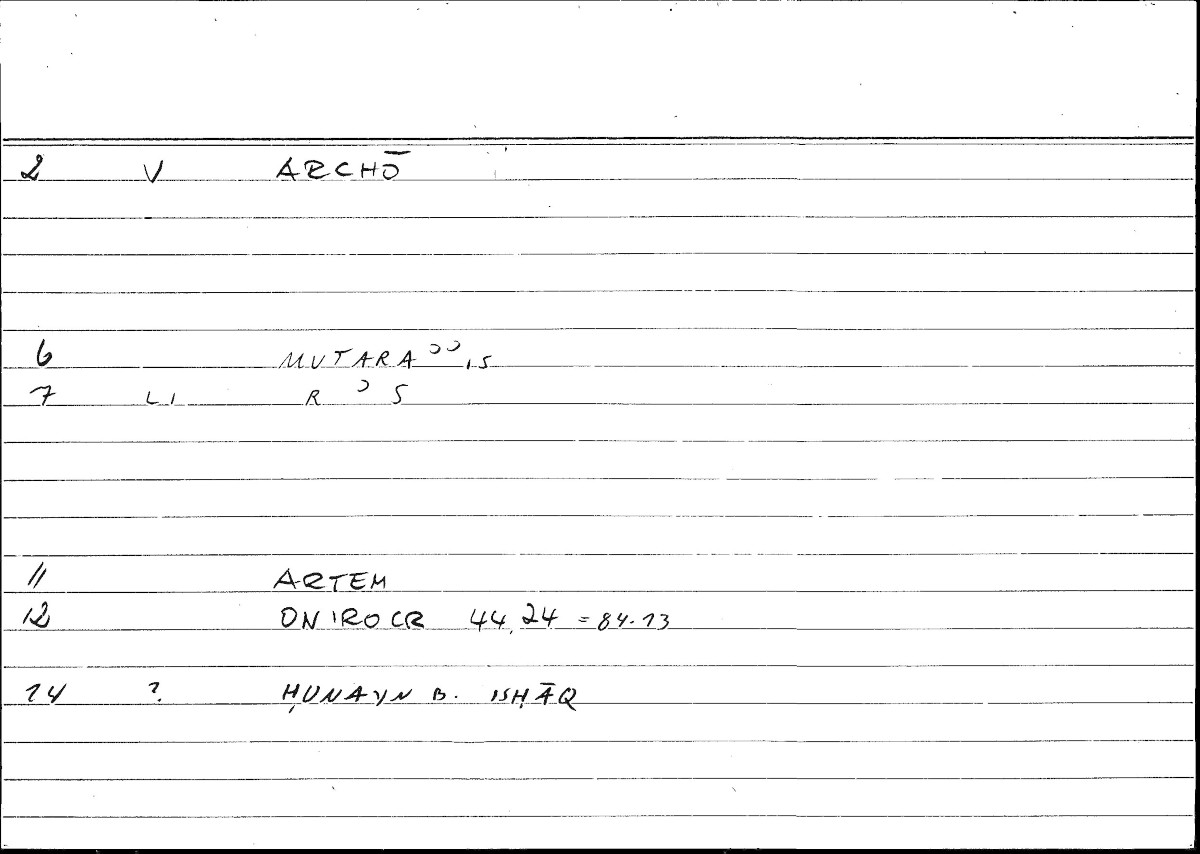 2 V ARCHŌ
6 MUTARAʾʾIS
7 LI R ʾ S
11 ARTEM
12 ONIROCR 44,24 = 84.13
14 ? ḤUNAYN B. ISḤĀQ